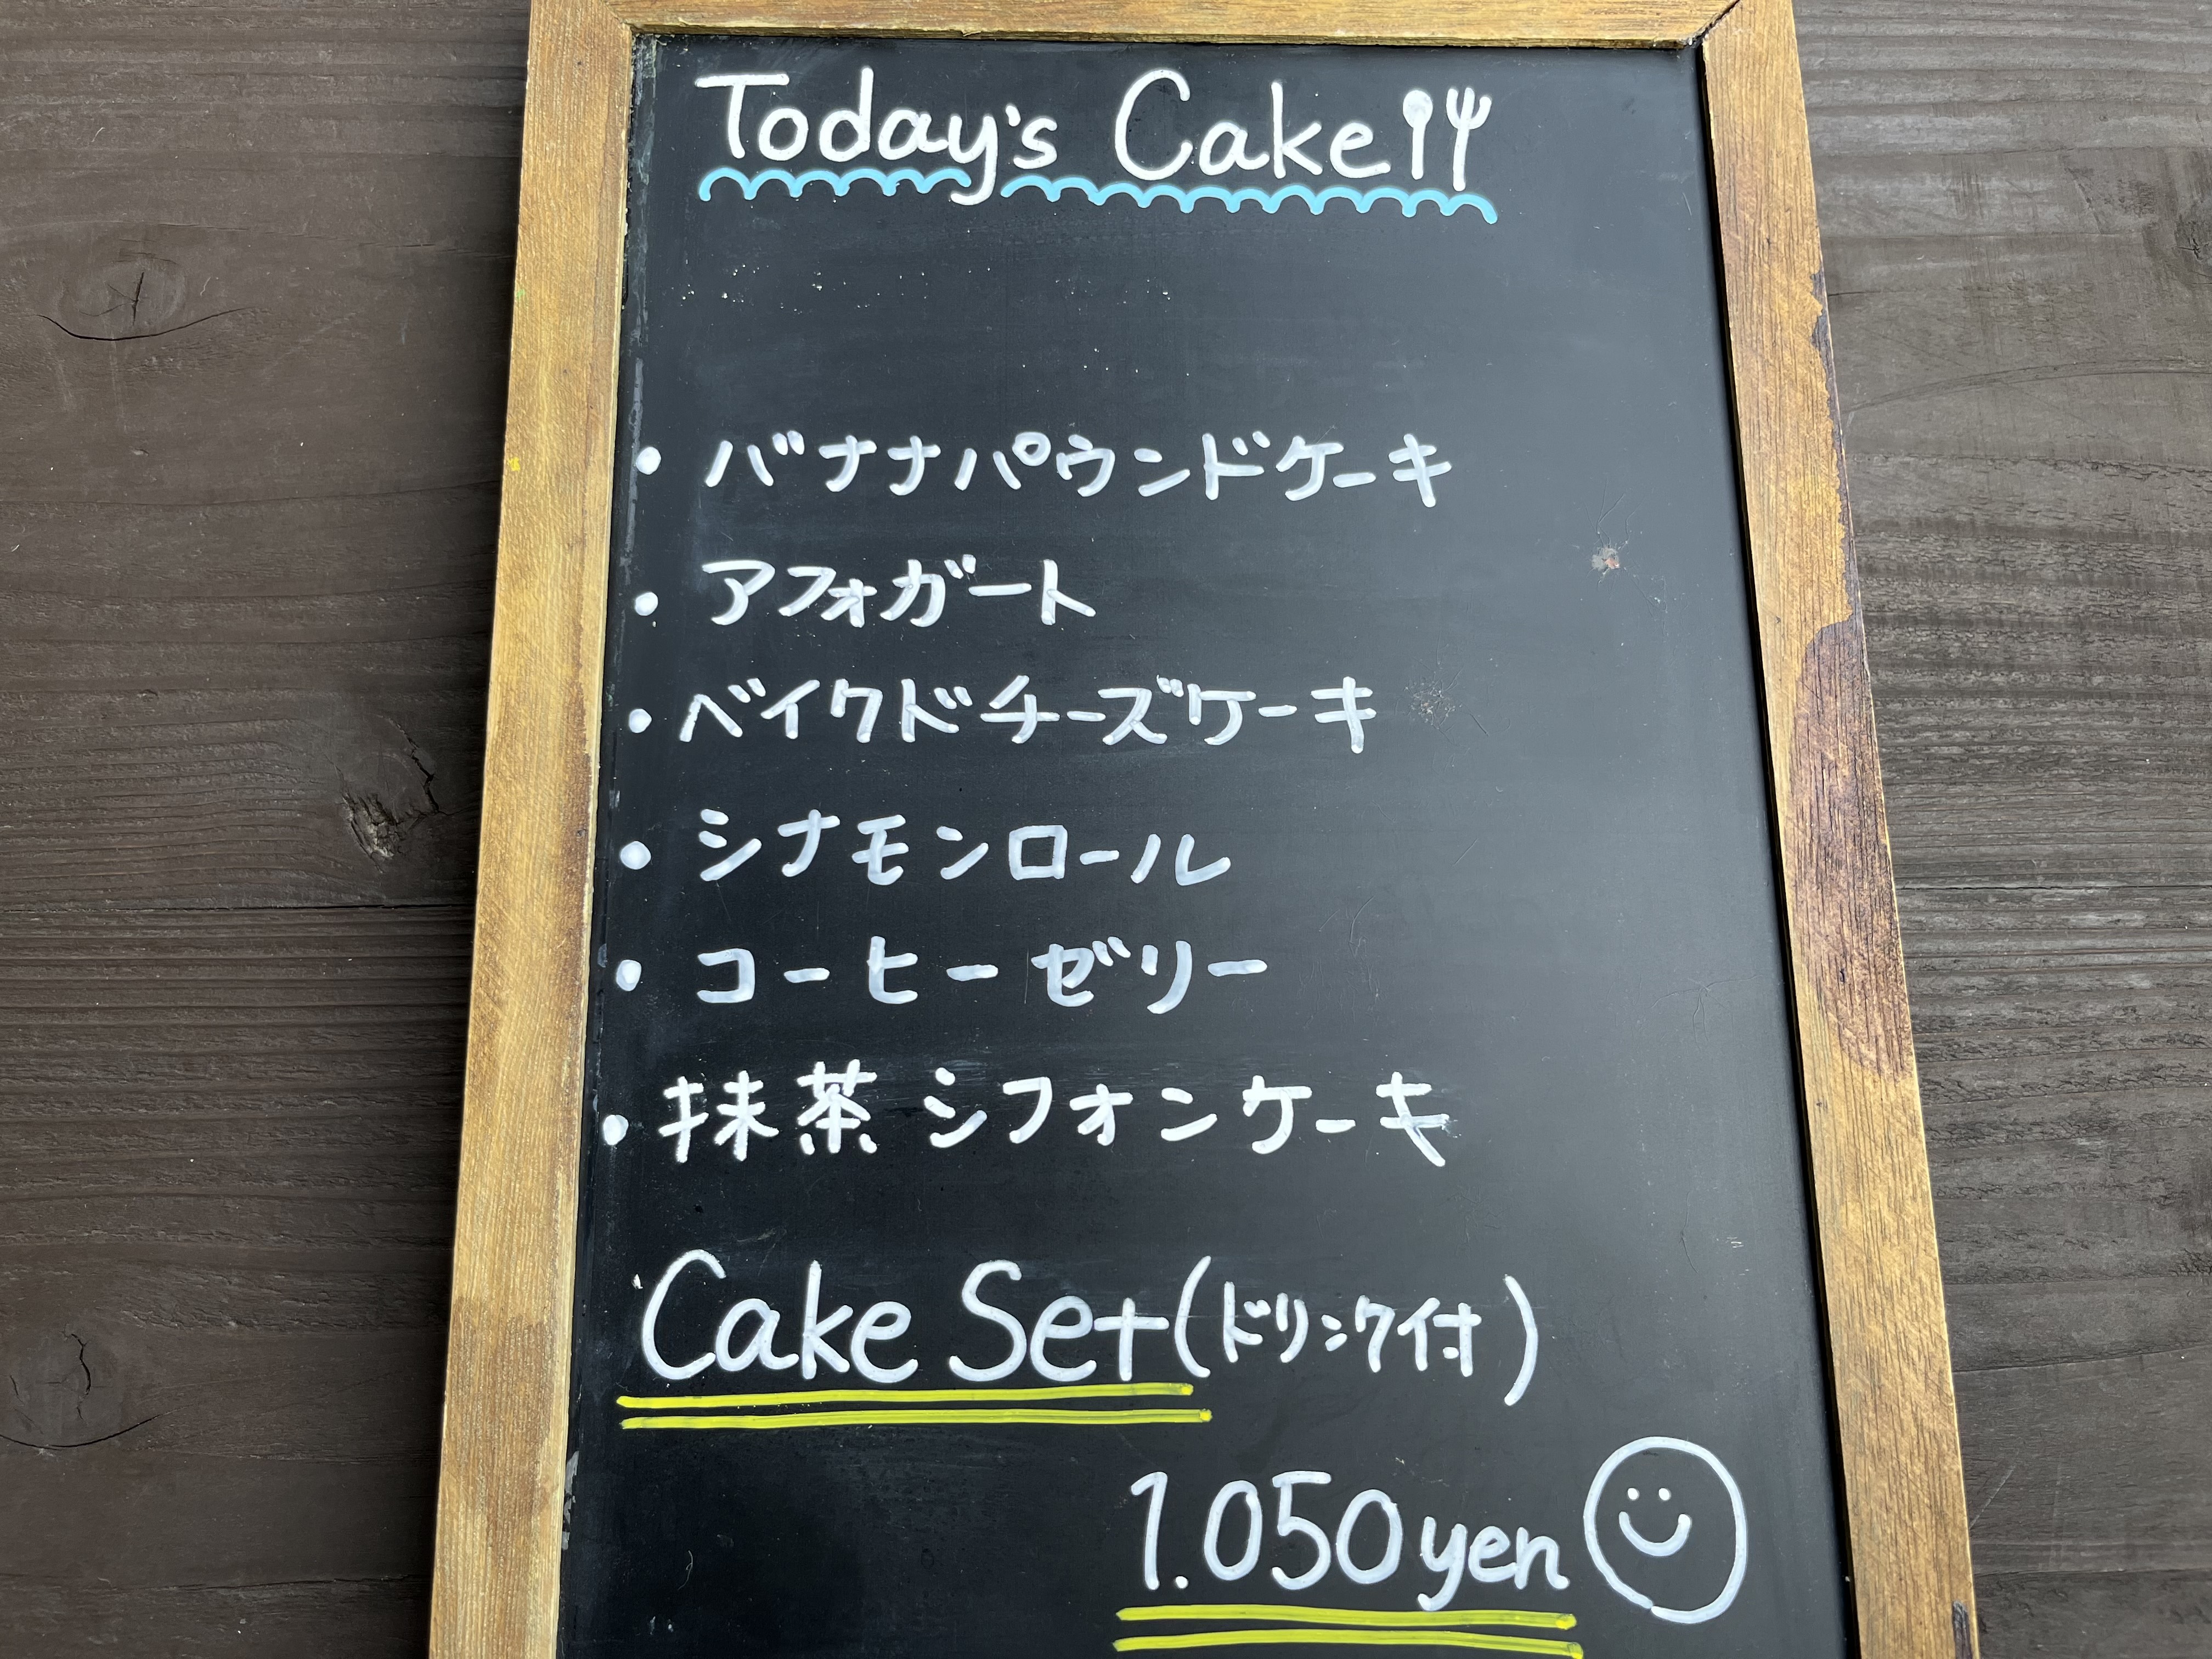 Today's Cake
・バナナパウンドケーキ
・アフォガート
・ベイクドチーズケーキ
・シナモンロール
・コーヒーゼリー
・抹茶シフォンケーキ
Cake Set(ドリンク付)
1.050yen